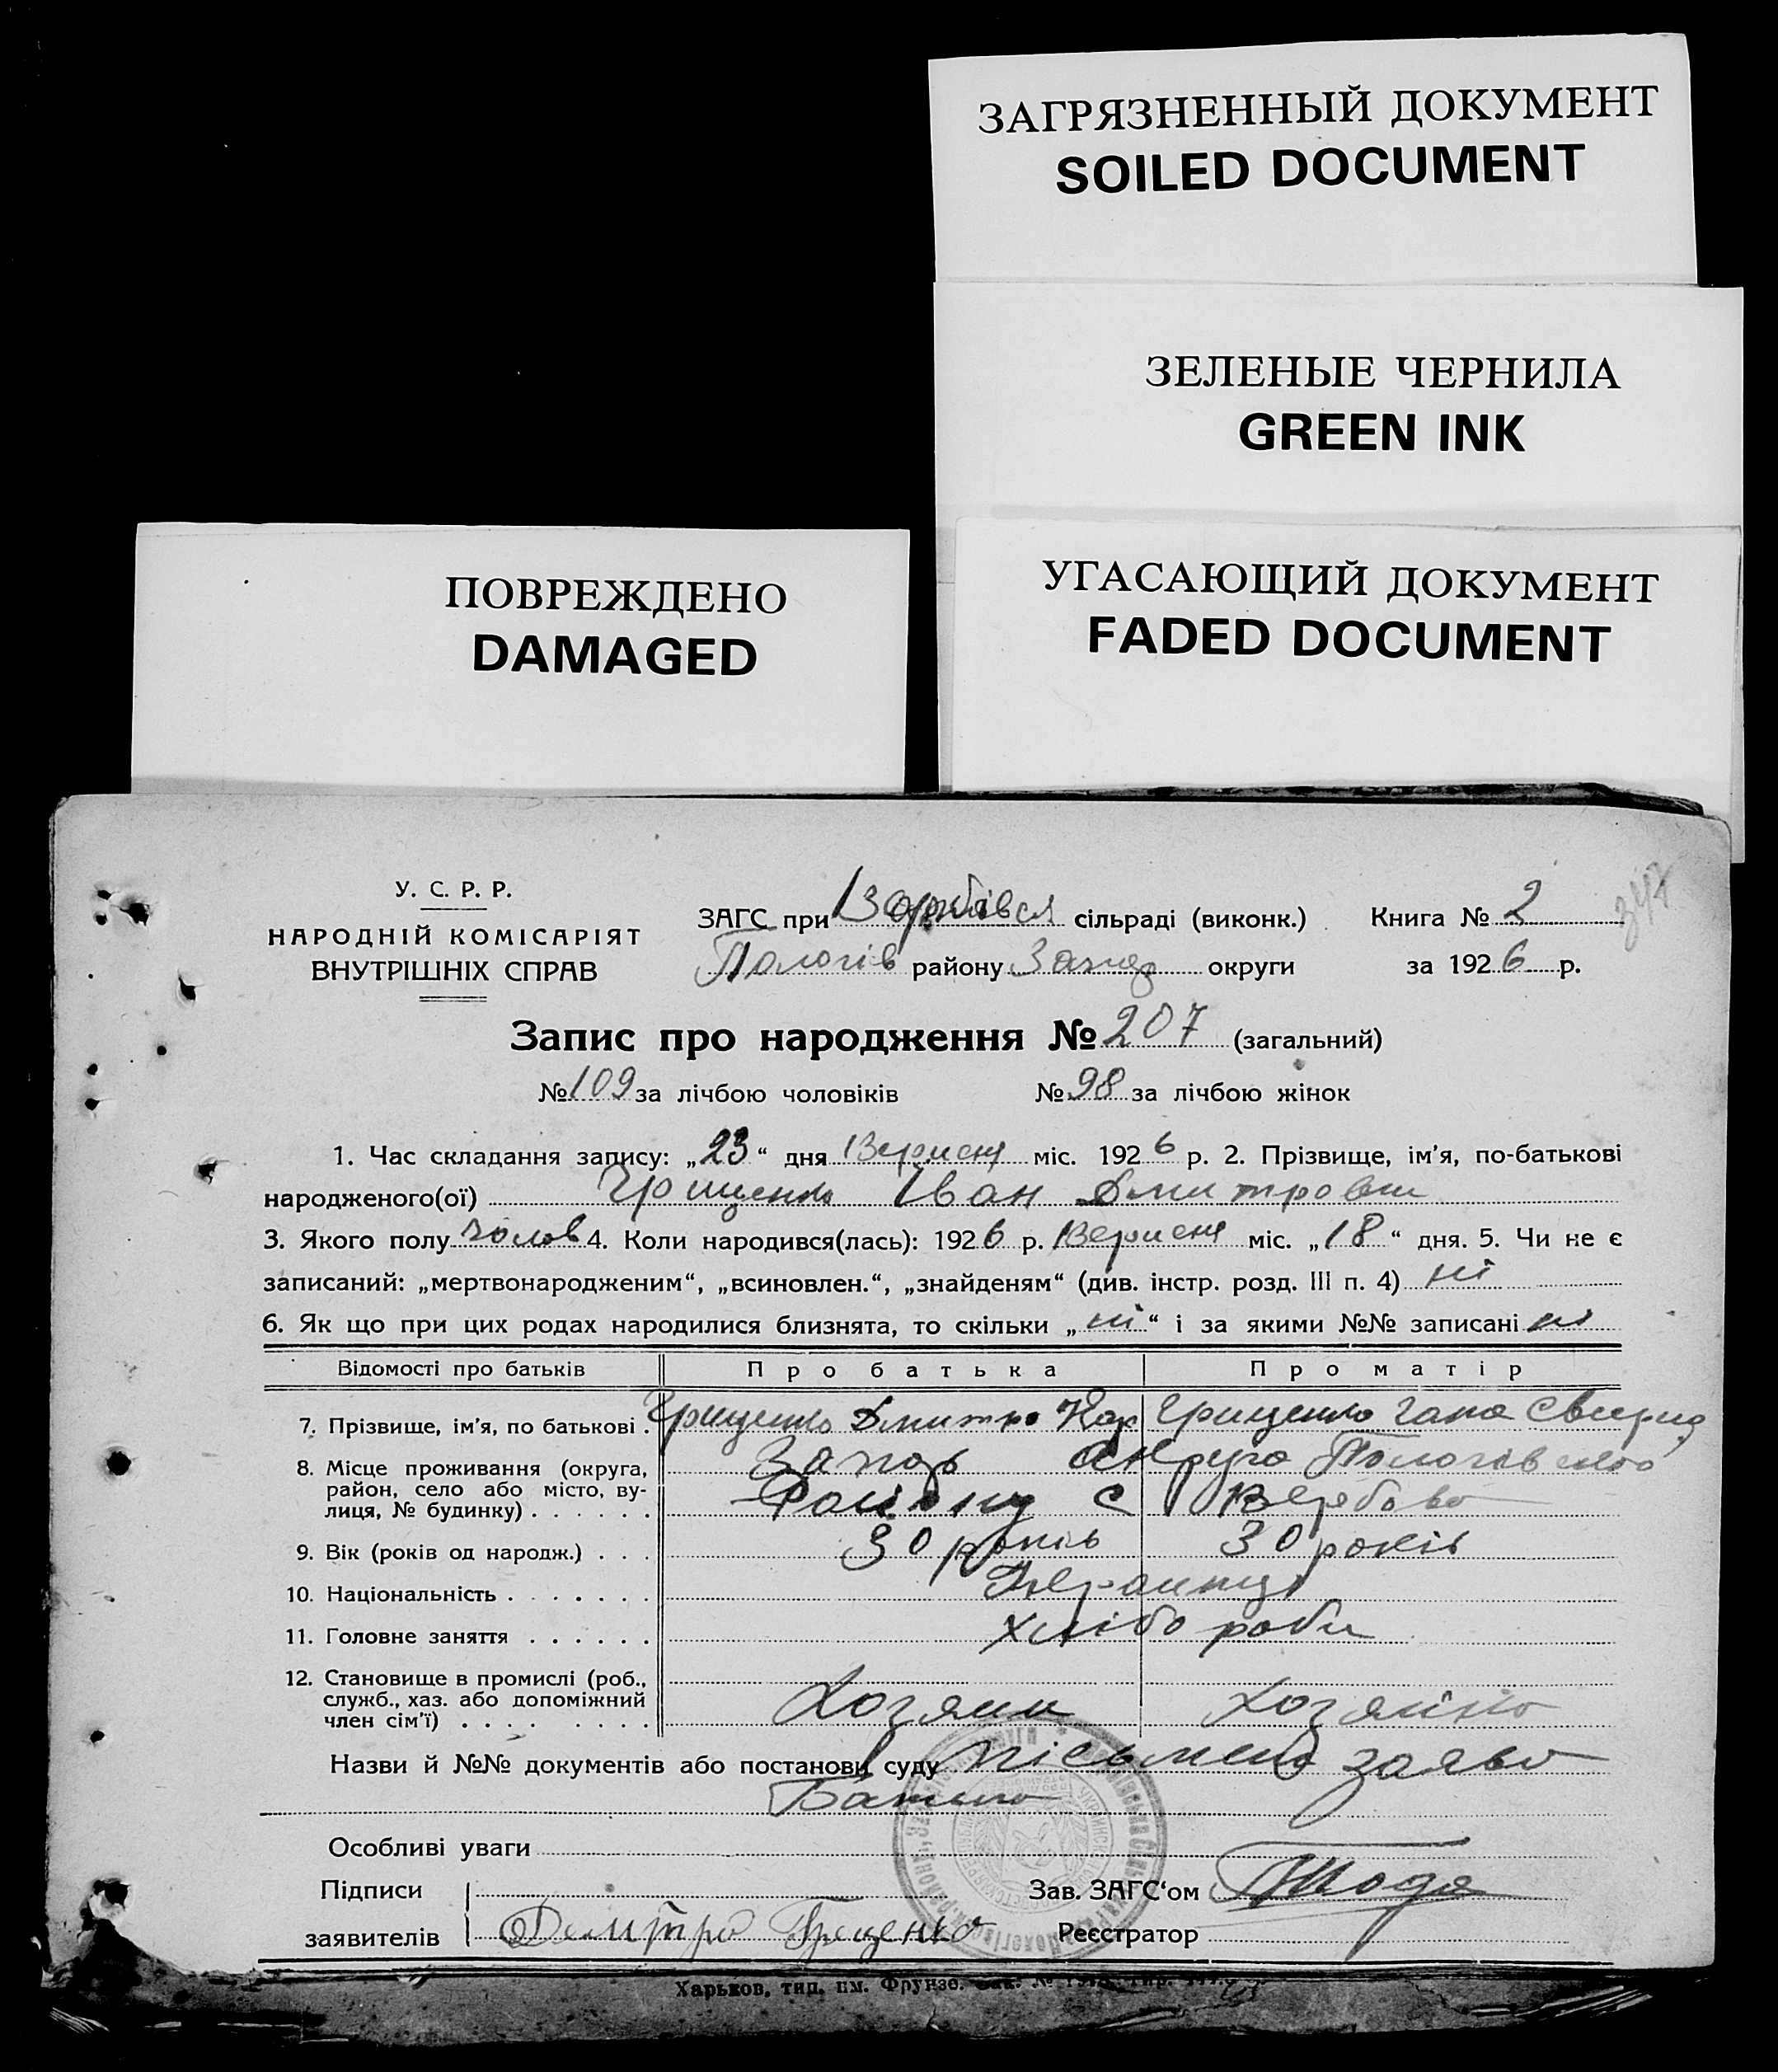 ЗАГРЯЗНЕННЫЙ ДОКУМЕНТ
SOILED DOCUMENT
ЗЕЛЕНЫЕ ЧЕРНИЛА
GREEN INK
ПОВРЕЖДЕНО
DAMAGED
УГАСАЮЩИЙ ДОКУМЕНТ
FADED DOCUMENT
347
У. С. Р. Р.
НАРОДНІЙ КОМІСАРІЯТ
ВНУТРІШНІХ СПРАВ
ЗАГС при сільраді (виконк.) Книга № 2
Пологів району Запор округи за 1926 р.
Запис про народження № 207 (загальний)
№ 109 за лічбою чоловіків № 98 за лічбою жінок
1. Час складання запису: „23“ дня Вересня міс. 1926 р. 2. Прізвище, ім'я, по-батькові
народженого(ої) Грищенко Іван Дмитрович
3. Якого полу чолов 4. Коли народився(лась): 1926 р. Вересня міс. „18“ дня. 5. Чи не є
записаний: „мертвонародженим“, „всиновлен.“, „знайденям“ (див. інстр. розд. III п. 4) ні
6. Як що при цих родах народилися близнята, то скільки „ні“ і за якими №№ записані ні
Відомості про батьків Про батька Про матір
7. Прізвище, ім'я, по батькові . Грищенко Дмитро Кар Грищенко Гана Свирид
8. Місце проживання (округа, район, село або місто, вулиця, № будинку) . . . . . . Запор Округа Пологівского
Району с Вербово
9. Вік (років од народж.) . . . 30 років 30 років
10. Національність . . . . . . . Українці
11. Головне заняття . . . . . . хлібороби
12. Становище в промислі (роб., служб., хаз. або допоміжний член сім'ї) . . . . . . . . Хозяин Хозяйка
Назви й №№ документів або постанови суду письмена заява
Батька
Особливі уваги
Підписи Зав. ЗАГС'ом
заявителів Демтро Грещенко Реєстратор
Харьков, тип. им. Фрунзе.